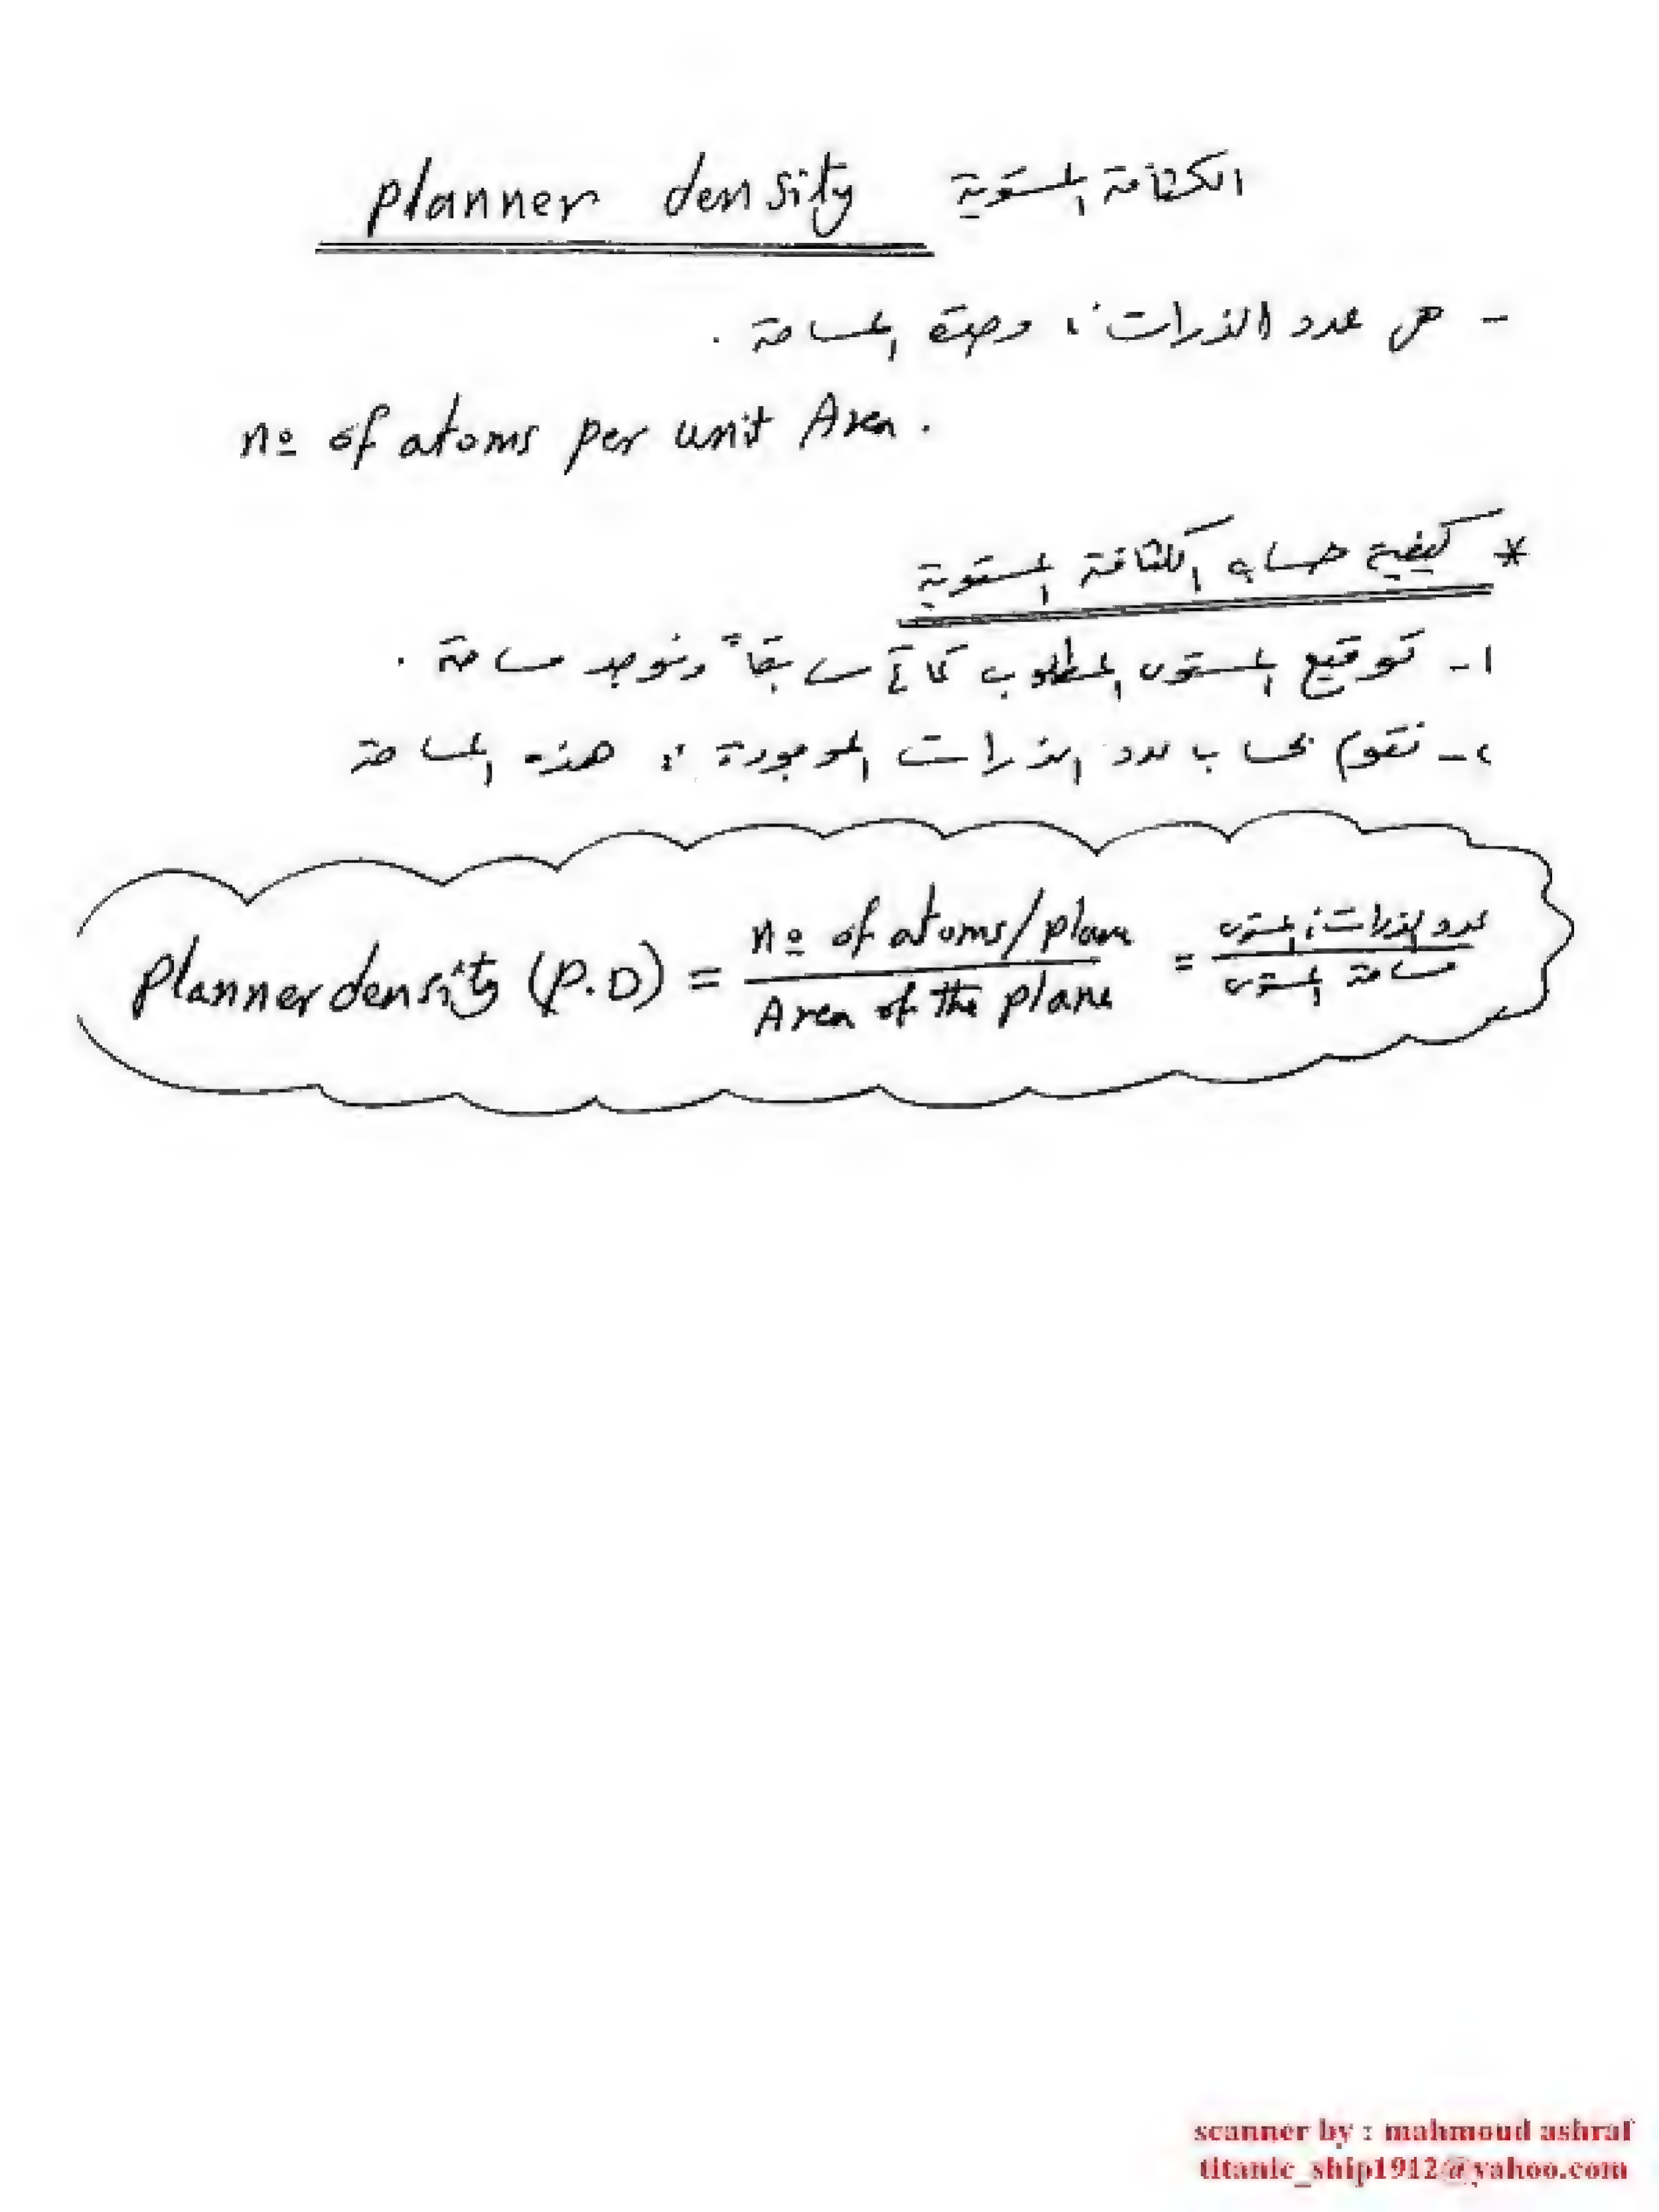 planner density الكثافة المستوية
- هى عدد الذرات فى وحدة المساحة .
nº of atoms per unit Area .
* كيفية حساب الكثافة المستوية
١- توقيع المستوى المطلوب كما تم سابقاً ونوجد مساحة .
٢- نقوم بحساب عدد الذرات الموجودة فى هذه المساحة
planner density (P.D) = nº of atoms/plane / Area of the plane = عدد الذرات فى المستوى / مساحة المستوى
scanner by : mahmoud ashraf
titanic_ship1912@yahoo.com